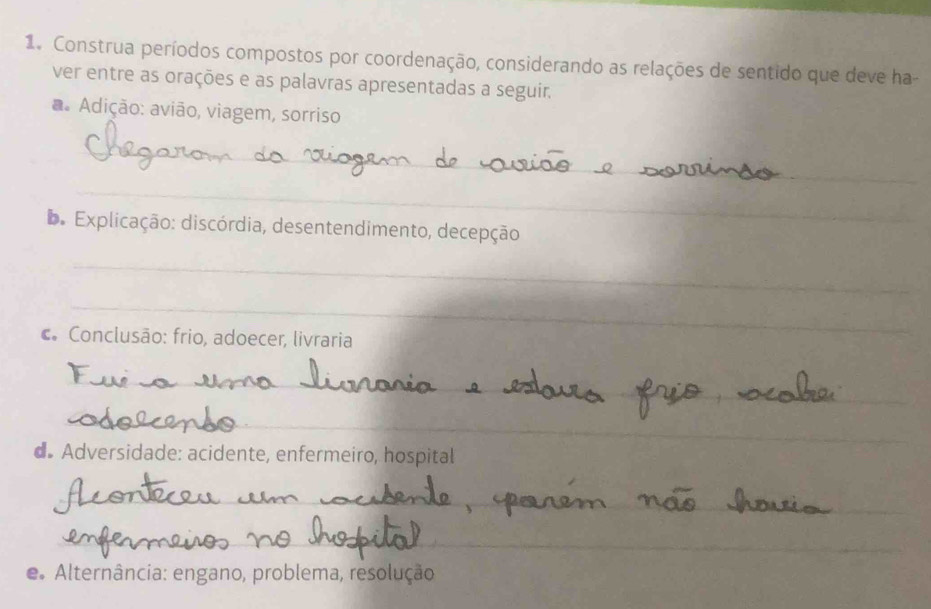 1. Construa períodos compostos por coordenação, considerando as relações de sentido que deve ha-
ver entre as orações e as palavras apresentadas a seguir.
a. Adição: avião, viagem, sorriso
Chegaram da viagem de avião e sorrindo
b. Explicação: discórdia, desentendimento, decepção
c. Conclusão: frio, adoecer, livraria
Fui a uma livraria e estava frio, acabei
adoecendo.
d. Adversidade: acidente, enfermeiro, hospital
Aconteceu um acidente, porém não havia
enfermeiros no hospital
e. Alternância: engano, problema, resolução